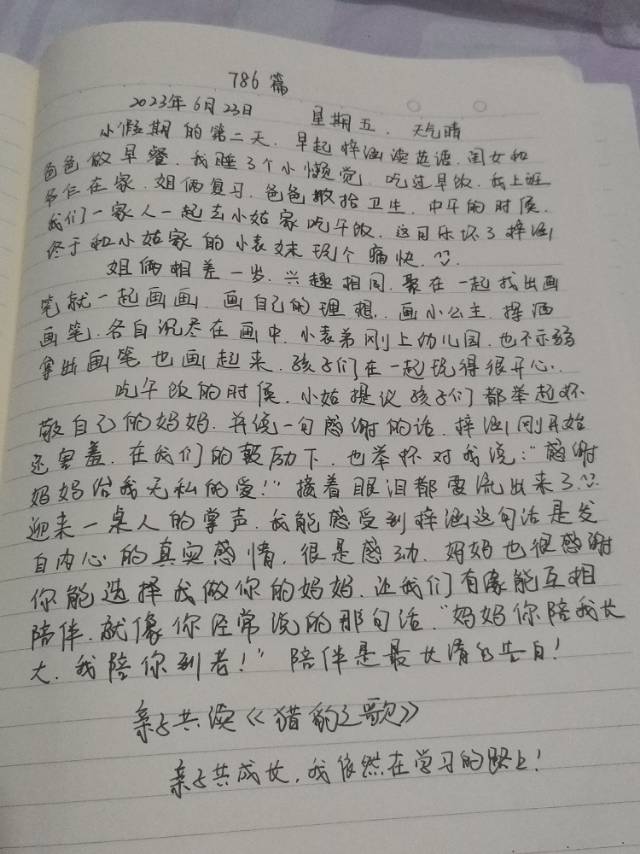 786篇
2023年6月23日 星期五. 天气晴
小假期的第二天. 早起梓涵读英语. 闺女和
爸爸做早餐. 我睡了个小懒觉. 吃过早饭. 我上班
在家. 姐俩复习. 爸爸收拾卫生. 中午的时候.
我们一家人一起去小姑家吃午饭. 这可乐坏了梓涵
终于和小姑家的小表妹玩个痛快.
姐俩相差一岁. 兴趣相同. 聚在一起找出画
笔就一起画画. 画自己的理想. 画小公主. 挥洒
画笔. 各自沉尽在画中. 小表弟刚上幼儿园. 也不示弱
拿出画笔也画起来. 孩子们在一起玩得很开心..
吃午饭的时候. 小姑提议孩子们都举起杯
敬自己的妈妈. 并说一句感谢的话. 梓涵刚开始
还害羞. 在我们的鼓励下. 也举杯对我说:"感谢
妈妈给我无私的爱!" 接着眼泪都要流出来了.
迎来一桌人的掌声. 我能感受到梓涵这句话是发
自内心的真实感情. 很是感动. 妈妈也很感谢
你能选择我做你的妈妈. 让我们有缘能互相
陪伴. 就像你经常说的那句话. "妈妈你陪我长
大. 我陪你到老!" 陪伴是最长情的告白!
亲子共读《猎豹之歌》
亲子共成长. 我依然在学习的路上!